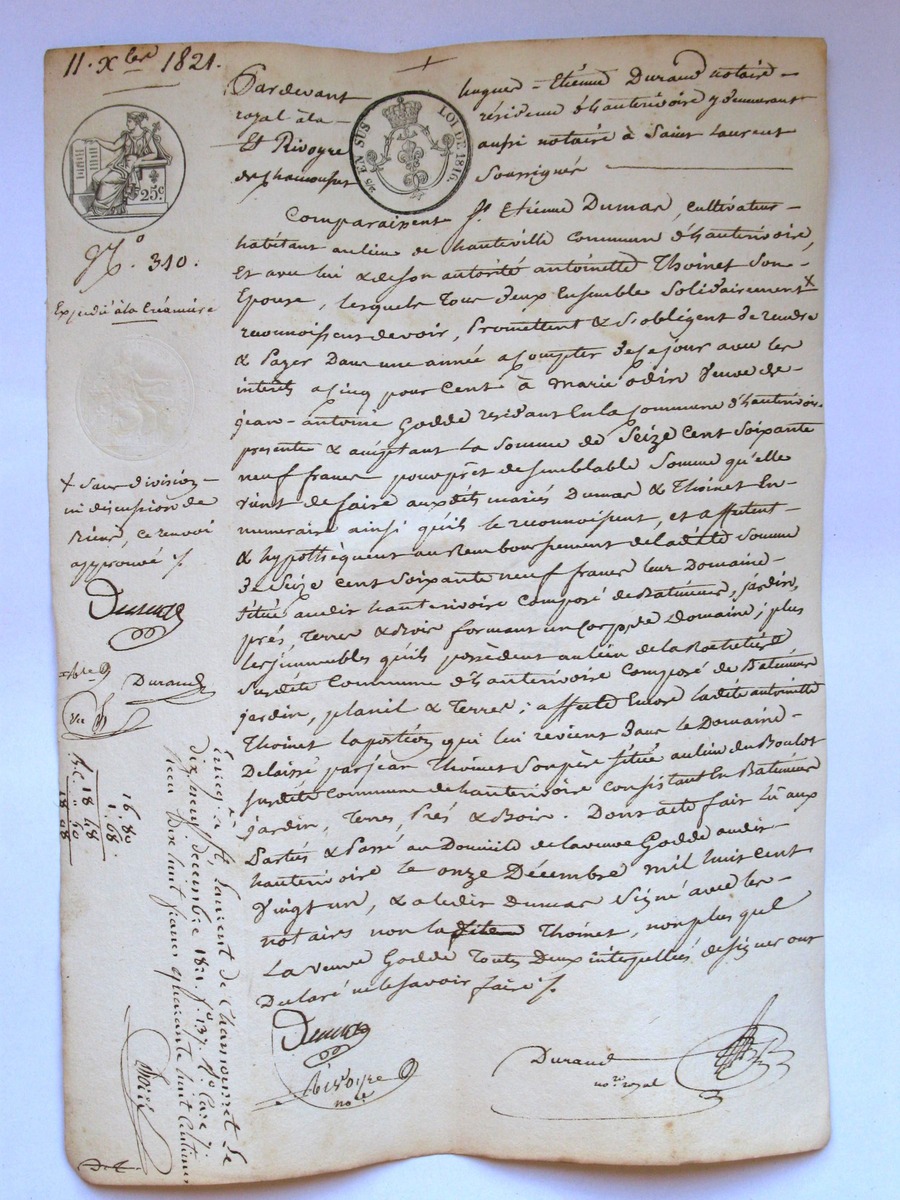 11. Xbre 1821.
Pardevant hugues-Etienne Durand notaire
royal à la résidence d'hauterivoire y demeurant
Et Rivoyre aussi notaire à Saint Laurent
de chamousset Soussignés
EN SUS LOI DE 1816.
25 c
N.o 310.
Expédié à la Créancière
Comparaissent Sr. Etienne Dumas, cultivateur
habitant au lieu de hauteville commune d'hauterivoire,
Et avec lui & de son autorité antoinette Thoinet Son
Epouse, lesquels Tous deux Ensemble Solidairement X
reconnoissent devoir, Promettent & S'obligent de rendre
& Payer Dans une année a Compter de ce jour avec les
intérêts a cinq pour Cent à marie odin Veuve de
jean-antoine Godde résidant En la Commune d'hauterivoire
présente & acceptant La Somme de Seize Cent Soixante
neuf francs pour prêt de semblable Somme qu'elle
vient de faire auxdits mariés Dumas & Thoinet En
numeraire ainsi qu'ils le reconnoissent, et affectent
& hypothèquent au Remboursement de ladite Somme
de Seize cent Soixante neuf francs leur Domaine
Situé audit hauterivoire Composé de Batiments, jardin,
prés, Terres & Bois formant un Corps de Domaine; plus
les immeubles qu'ils possèdent au lieu de la
Susdite Commune d'hauterivoire Composé de Batiments
jardin, & Terres; affecte Encore ladite antoinette
Thoinet la portion qui lui revient dans le Domaine
Delaissé par jean Thoinet Son père Situé au lieu du Boulot
Susdite Commune de hauterivoire Consistant En Batiments
jardin, Terres, Prés & Bois. Dont acte fait lû aux
Parties & Passé au Domicile de la veuve Godde audit
hauterivoire le onze Décembre mil huit cent
Vingt un, & a ledit Dumas Signé avec les
notaires non la Thoinet, non plus que
La veuve Godde Toutes Deux interpellées de signer ont
Declaré ne le savoir faire /.
X Sans division
ni discussion de
biens, ce renvoi
approuvé /.
Dumas
Durand
16. 80
1. 68.
18 48
Enreg. à St. Laurent de Chamousset le
dix neuf decembre 1821. fo. 137. Ro. Case 7.
Recu Dix huit francs quarante huit centimes
Dumas
Rivoyre
nore
Durand
nore royal